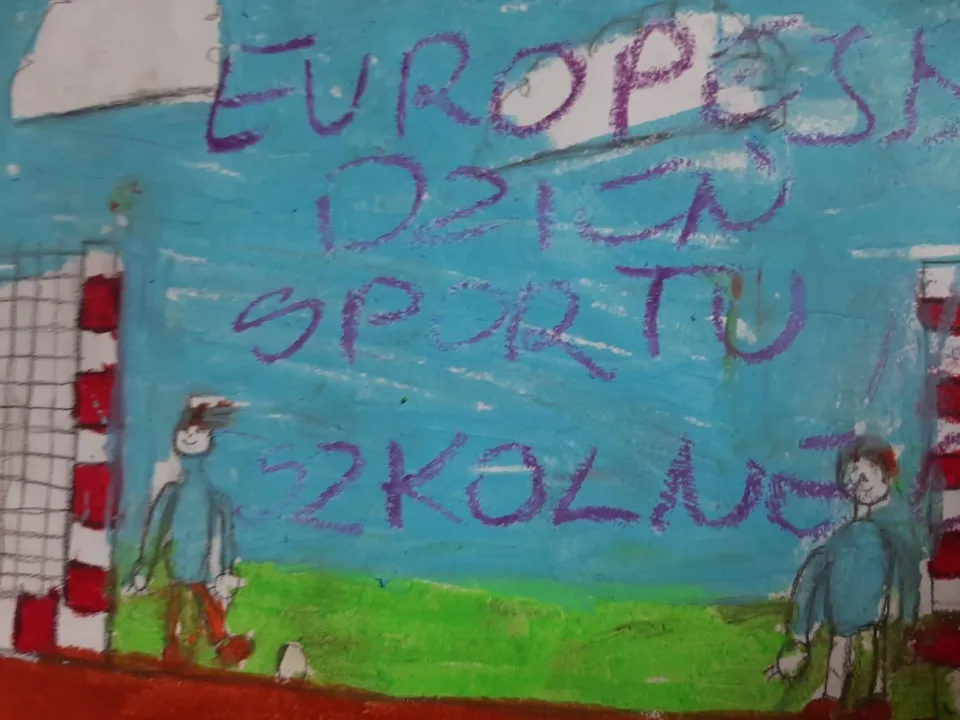 EUROPEJSK
DZIEŃ
SPORTU
SZKOLNE